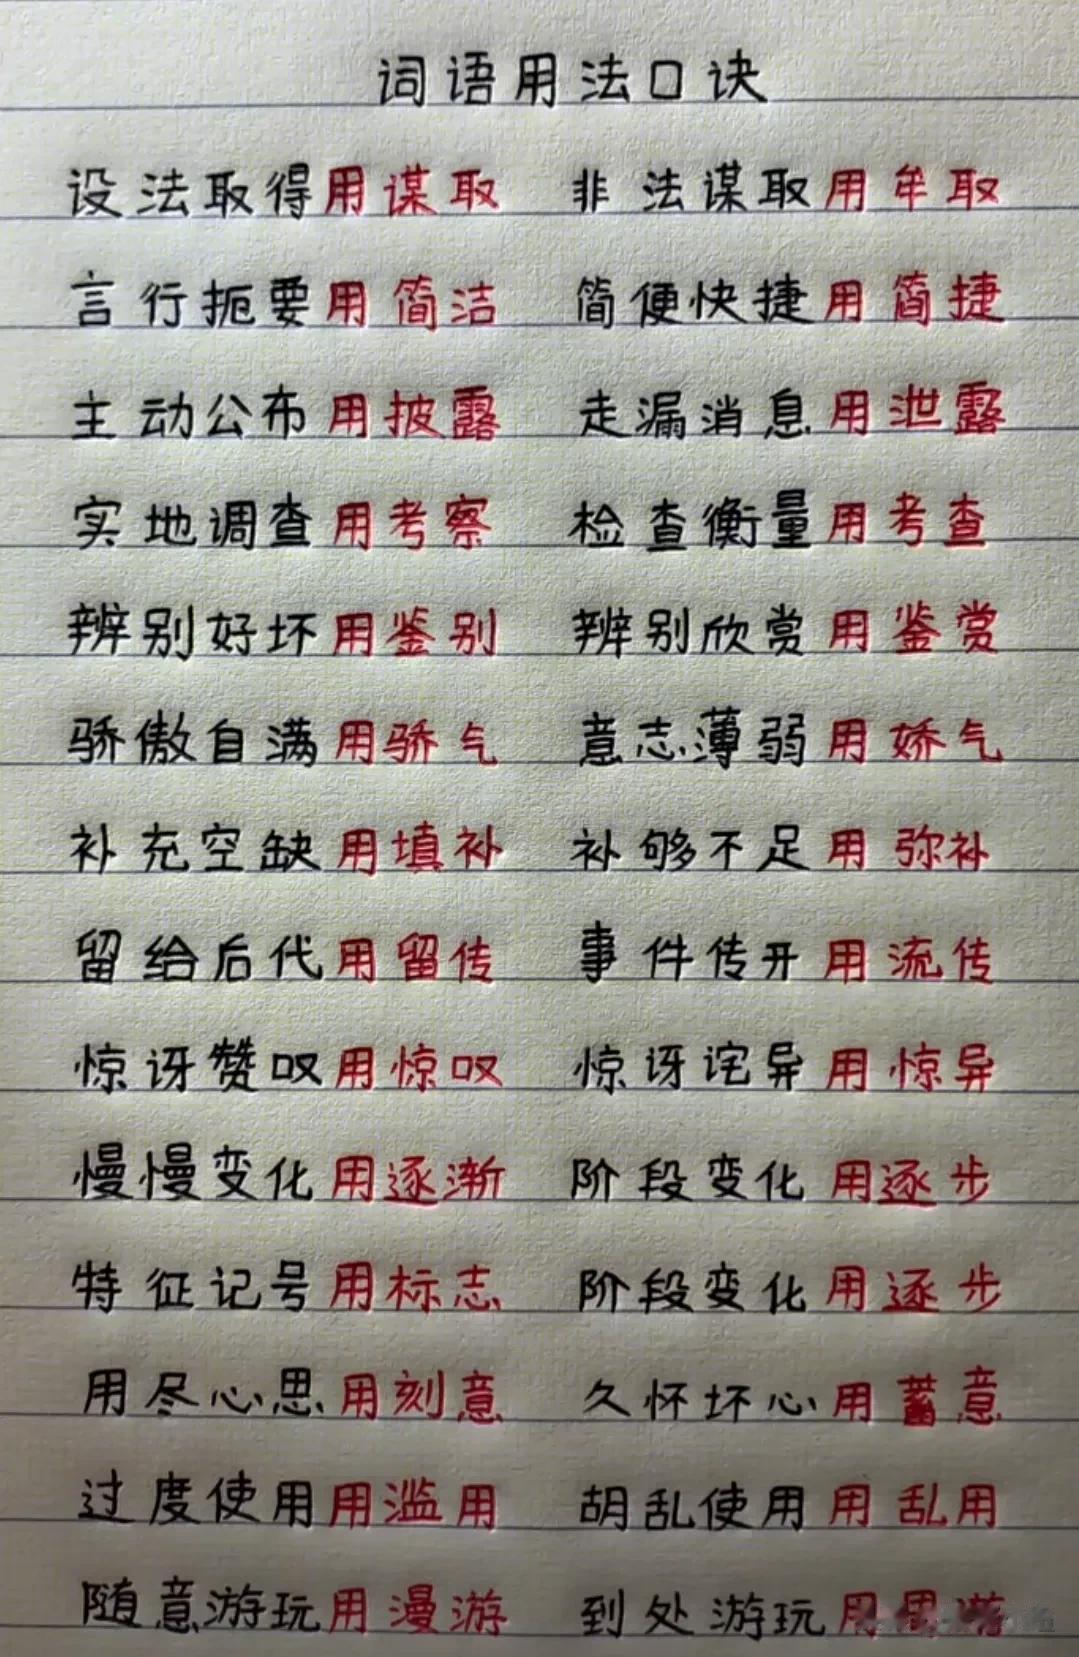 词语用法口诀
设法取得用谋取 非法谋取用牟取
言行扼要用简洁 简便快捷用简捷
主动公布用披露 走漏消息用泄露
实地调查用考察 检查衡量用考查
辨别好坏用鉴别 辨别欣赏用鉴赏
骄傲自满用骄气 意志薄弱用娇气
补充空缺用填补 补够不足用弥补
留给后代用留传 事件传开用流传
惊讶赞叹用惊叹 惊讶诧异用惊异
慢慢变化用逐渐 阶段变化用逐步
特征记号用标志 阶段变化用逐步
用尽心思用刻意 久怀坏心用蓄意
过度使用用滥用 胡乱使用用乱用
随意游玩用漫游 到处游玩用周游